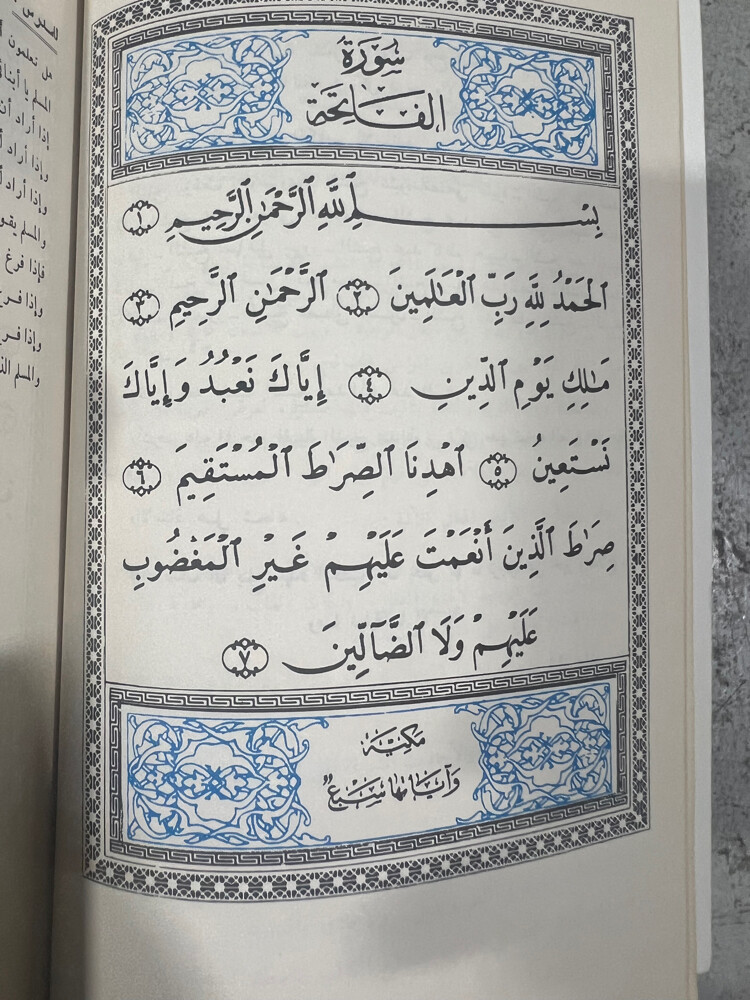 سُورَةُ
الفَاتِحَة
بِسْمِ ٱللَّهِ ٱلرَّحْمَٰنِ ٱلرَّحِيمِ ١
ٱلْحَمْدُ لِلَّهِ رَبِّ ٱلْعَٰلَمِينَ ٢ ٱلرَّحْمَٰنِ ٱلرَّحِيمِ ٣
مَٰلِكِ يَوْمِ ٱلدِّينِ ٤ إِيَّاكَ نَعْبُدُ وَإِيَّاكَ
نَسْتَعِينُ ٥ ٱهْدِنَا ٱلصِّرَٰطَ ٱلْمُسْتَقِيمَ ٦
صِرَٰطَ ٱلَّذِينَ أَنْعَمْتَ عَلَيْهِمْ غَيْرِ ٱلْمَغْضُوبِ
عَلَيْهِمْ وَلَا ٱلضَّآلِّينَ ٧
مَكِّيَّة
وَآيَاتُهَا سَبْعٌ
هل تعلمون
المسلم يا أبنا
إذا أراد أن
وإذا أراد
وإذا أراد
والمسلم يقو
فإذا فرغ
وإذا فرغ
وإذا فرغ
والمسلم الذ